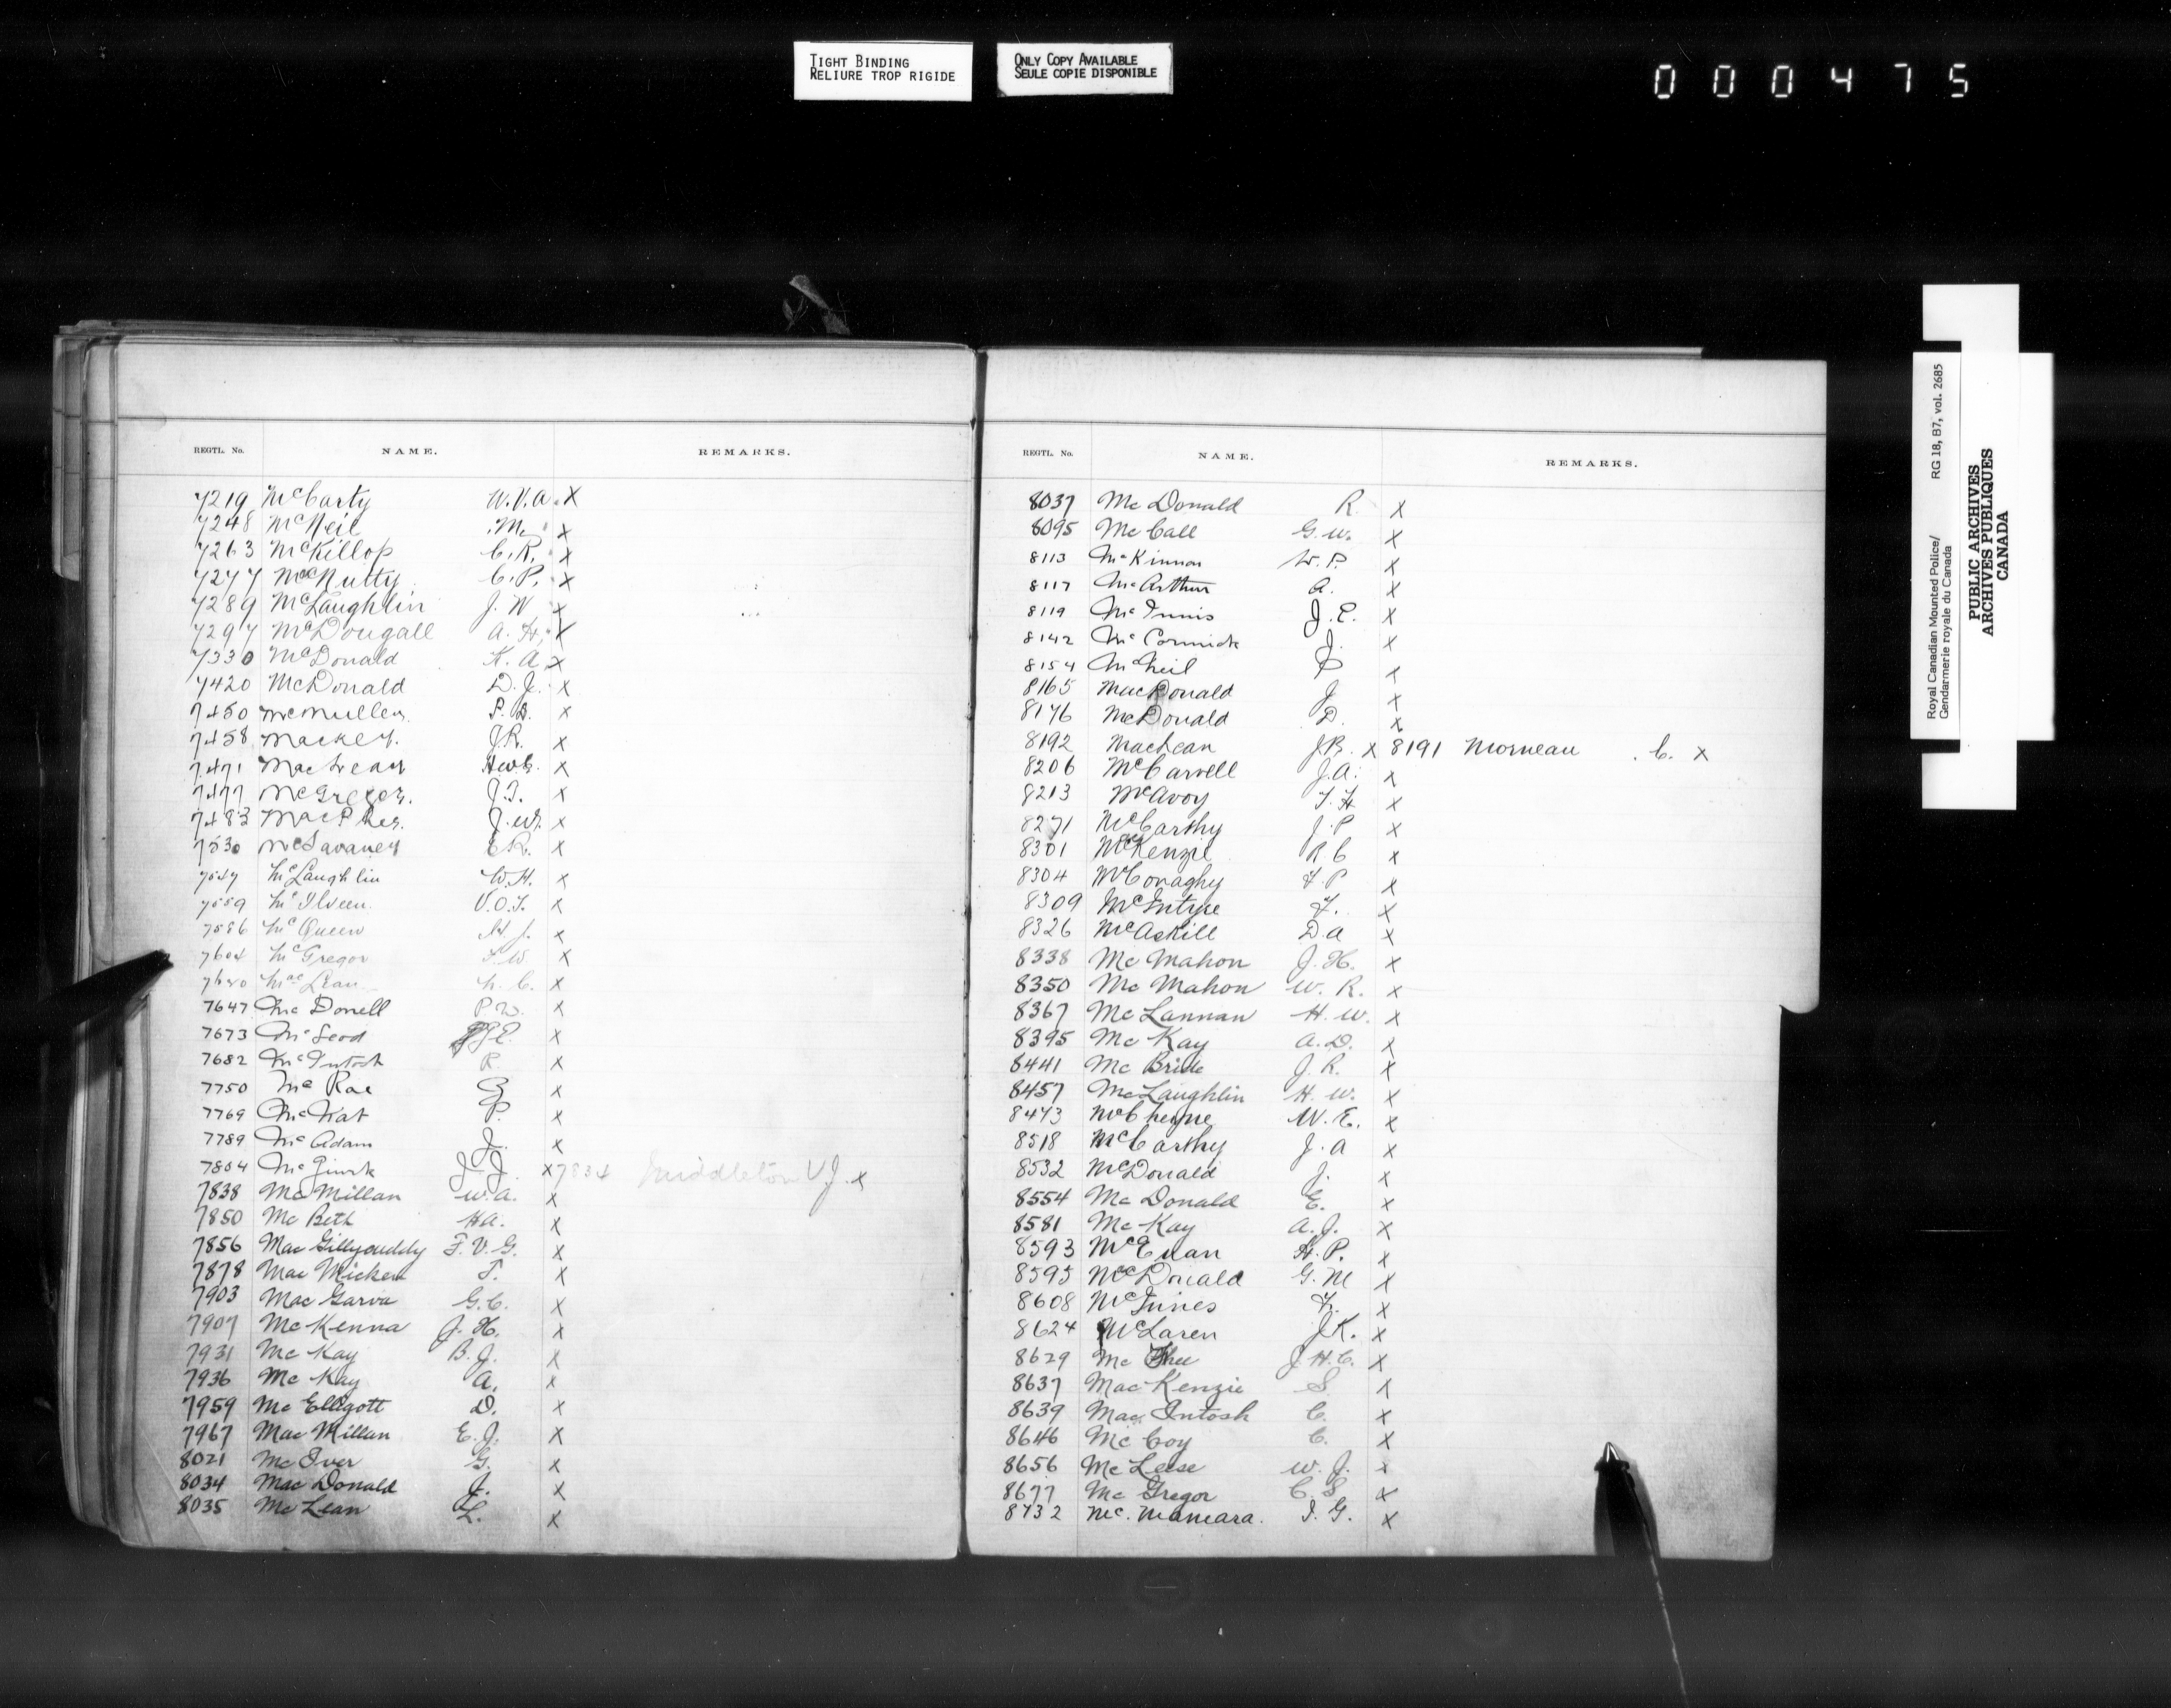 TIGHT BINDING
RELIURE TROP RIGIDE
ONLY COPY AVAILABLE
SEULE COPIE DISPONIBLE
000475
REGTL. No. NAME. REMARKS.
7219 McCarty W.V.A. X
7248 McNeil M. X
7263 McKillop C.R. X
7277 McNutty C.P. X
7289 McLaughlin J.W. X
7297 McDougall A.H. X
7330 McDonald K.A. X
7420 McDonald D.J. X
7450 McMullen P.D. X
7458 Mackey. J.R. X
7471 MacLean X
7477 McGregor. J.T. X
7483 MacPhee. J.W. X
7530 McLavaney E.R. X
7547 McLaughlin W.H. X
7559 McIlveen. V.O.T. X
7586 McQueen X
7604 McGregor F.W. X
MacLean X
7647 McDonell P.W. X
7673 McLeod X
7682 McIntosh R. X
7750 McRae X
7769 McNat P. X
7789 McAdam J. X
7804 J.J. X 7834 Middleton V.J. X
7838 McMillan W.A. X
7850 McBeth H.A. X
7856 MacGillycuddy F.V.G. X
7878 MacMicken T. X
7903 MacGarva G.C. X
7907 McKenna J.H. X
7931 McKay B.J. X
7936 McKay A. X
7959 McElligott D. X
7967 MacMillan E.J. X
8021 McIver G. X
8034 MacDonald J. X
8035 McLean L. X
REGTL. No. NAME. REMARKS.
8037 McDonald R. X
8095 McCall G.W. X
8113 McKinnon W.P. X
8117 McArthur A. X
8119 McInnis J.E. X
8142 McCormick J. X
8154 McNeil P X
8165 MacDonald J X
8176 McDonald D. X
8192 MacLean J.B. X 8191 Morneau C. X
8206 McCarvell J.A. X
8213 McAvoy T.H X
8271 McCarthy J.P X
8301 McKenzie R C X
8304 McConaghy F.P X
8309 McIntyre F. X
8326 McAskill D.A X
8338 McMahon J.H. X
8350 McMahon W.R. X
8367 McLannan H.W. X
8395 McKay A.D. X
8441 McBride J.R. X
8457 McLaughlin H.W. X
8473 McCheyne W.E. X
8518 McCarthy J.A X
8532 McDonald J. X
8554 McDonald E. X
8581 McKay A.J. X
8593 McEwan H.P. X
8595 McDonald G.M X
8608 McInnes F. X
8624 McLaren J.K. X
8629 McPhee J.H.C. X
8637 MacKenzie S. X
8639 MacIntosh C. X
8646 McCoy C. X
8656 McLeese W.J. X
8677 McGregor C.S X
8732 Mc.Mamara. I.G. X
Royal Canadian Mounted Police/ RG 18, B7, vol. 2685
Gendarmerie royale du Canada
PUBLIC ARCHIVES
ARCHIVES PUBLIQUES
CANADA